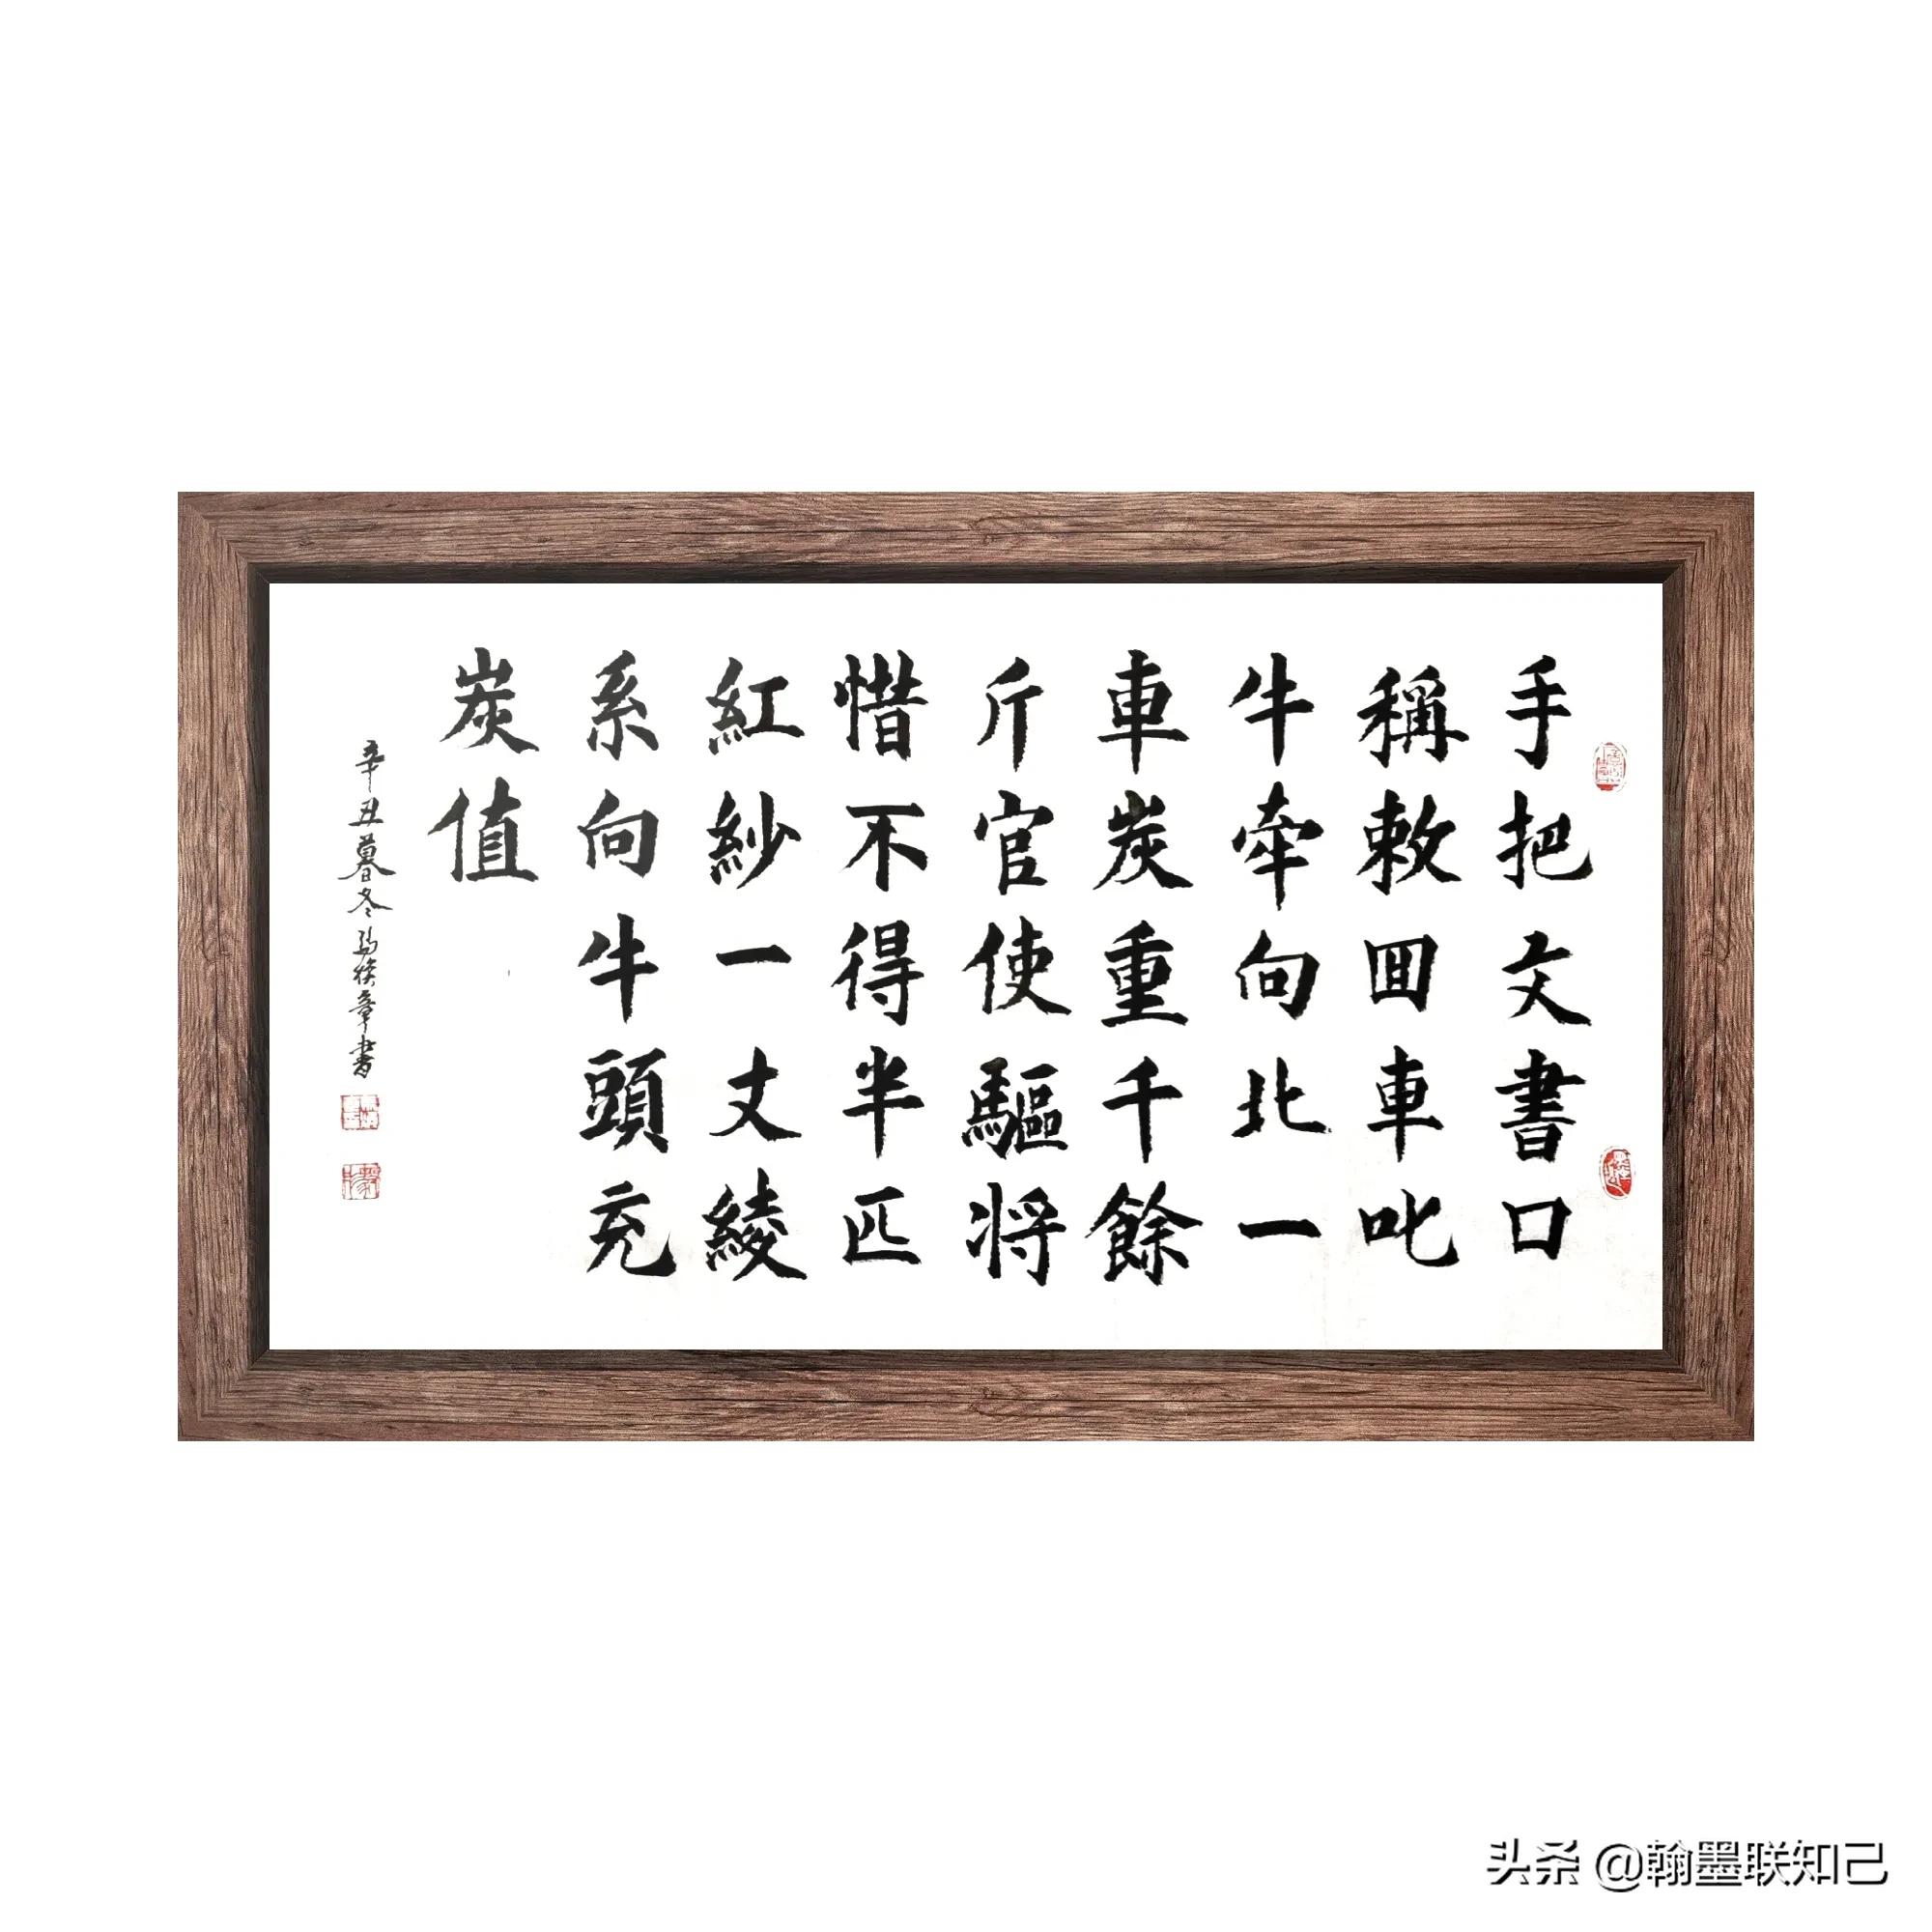 手把文書口
稱敕回車叱
牛牵向北一
車炭重千餘
斤官使驅将
惜不得半匹
紅紗一丈綾
系向牛頭充
炭值
辛丑暮冬
章書
头条 @翰墨联知己